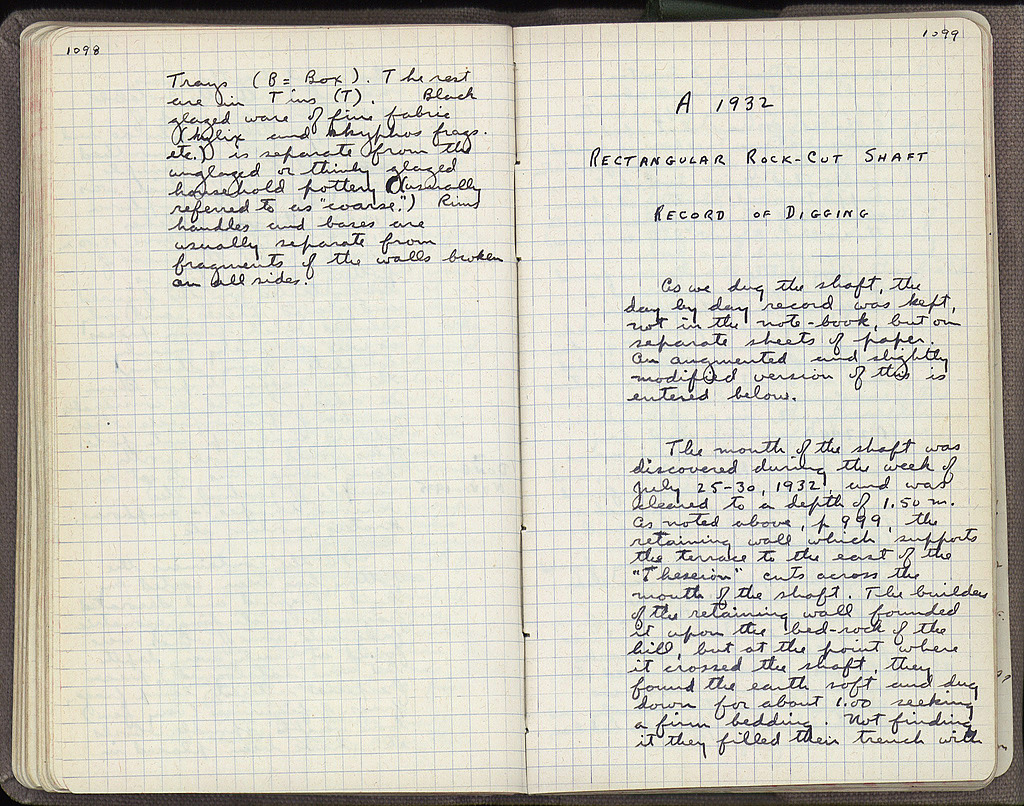 1098
Trays (B = Box). The rest
are in Tins (T). Black
glazed ware of fine fabric
(kylix and skyphos frags.
etc.) is separate from the
unglazed or thinly glazed
household pottery (usually
referred to as "coarse".) Rims
handles and bases are
usually separate from
fragments of the walls broken
on all sides.
1099
A 1932
RECTANGULAR ROCK-CUT SHAFT
RECORD OF DIGGING
As we dug the shaft, the
day by day record was kept,
not in the note-book, but on
separate sheets of paper.
An augmented and slightly
modified version of this is
entered below.
The mouth of the shaft was
discovered during the week of
July 25-30, 1932, and was
cleared to a depth of 1.50 m.
As noted above, p 999, the
retaining wall which supports
the terrace to the east of the
"Theseion" cuts across the
mouth of the shaft. The builders
of the retaining wall founded
it upon the bed-rock of the
hill, but at the point where
it crossed the shaft, they
found the earth soft and dug
down for about 1.00 seeking
a firm bedding. Not finding
it they filled their trench with